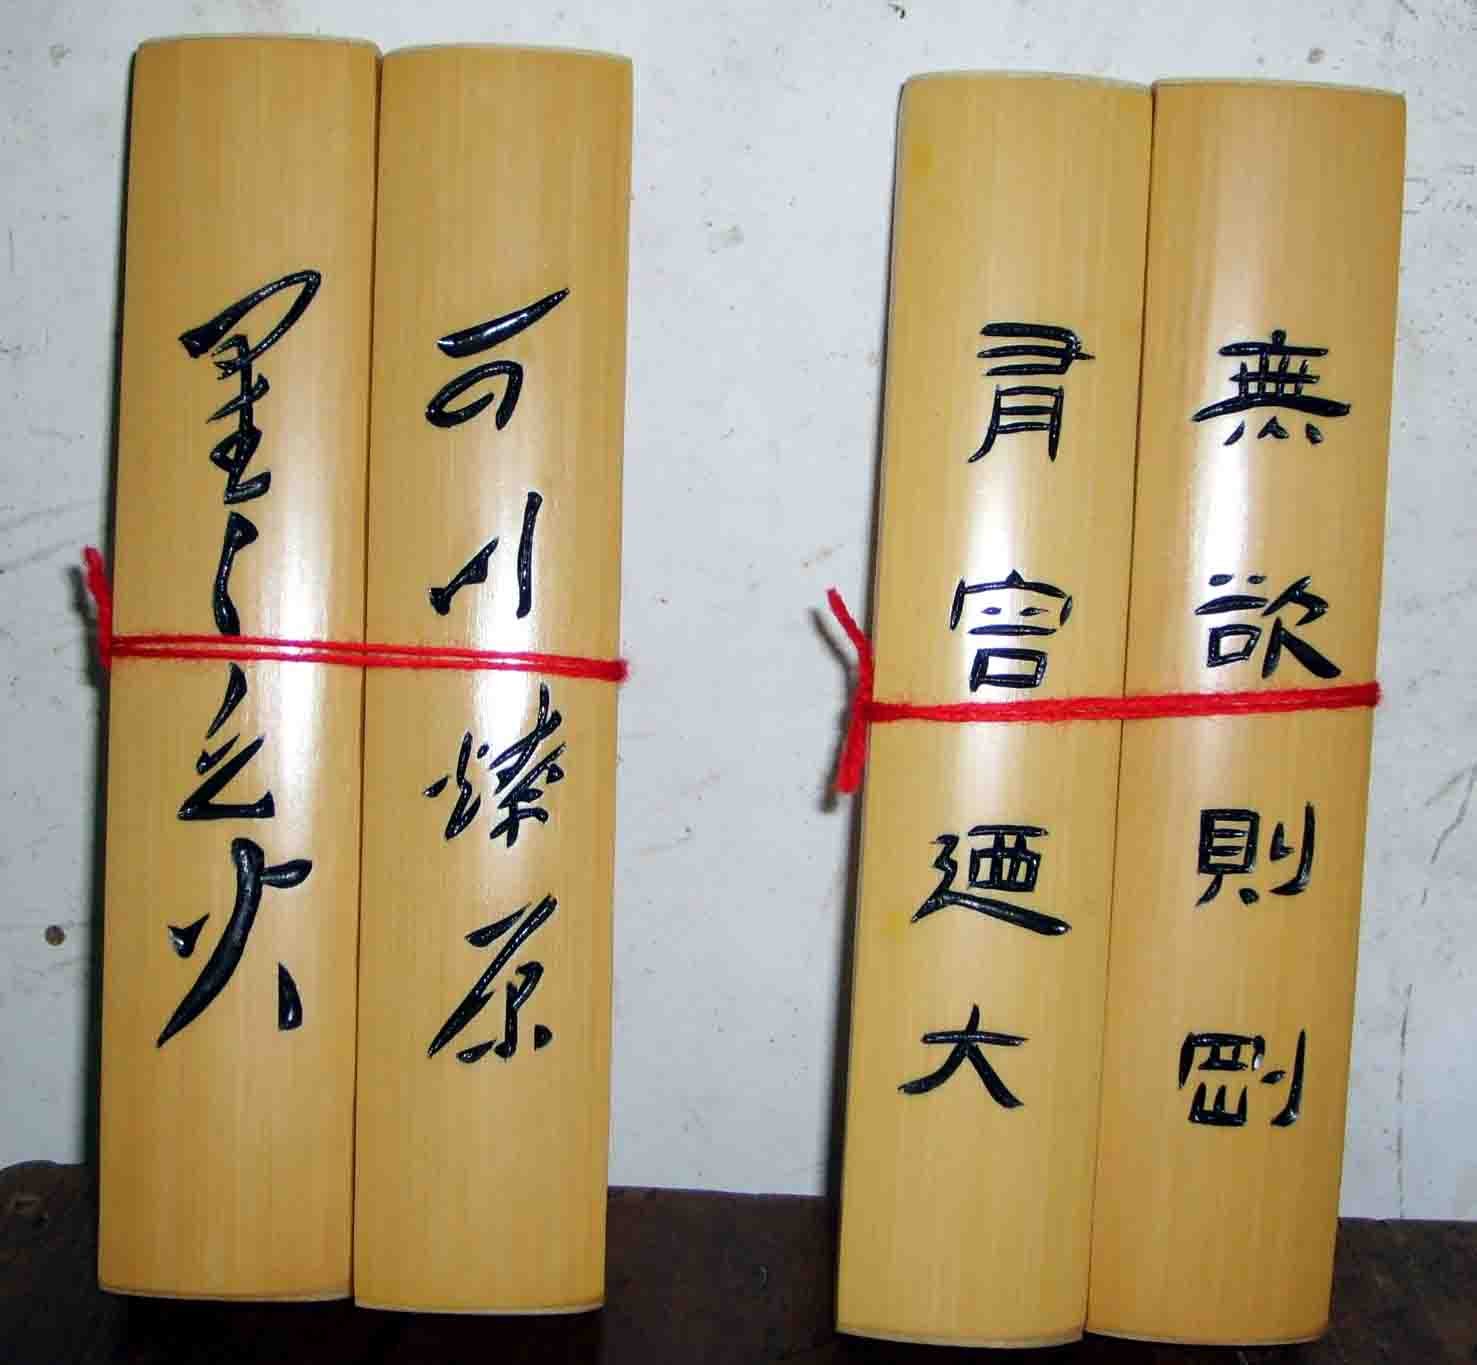 星星之火
可以燎原
有容廼大
無欲則剛